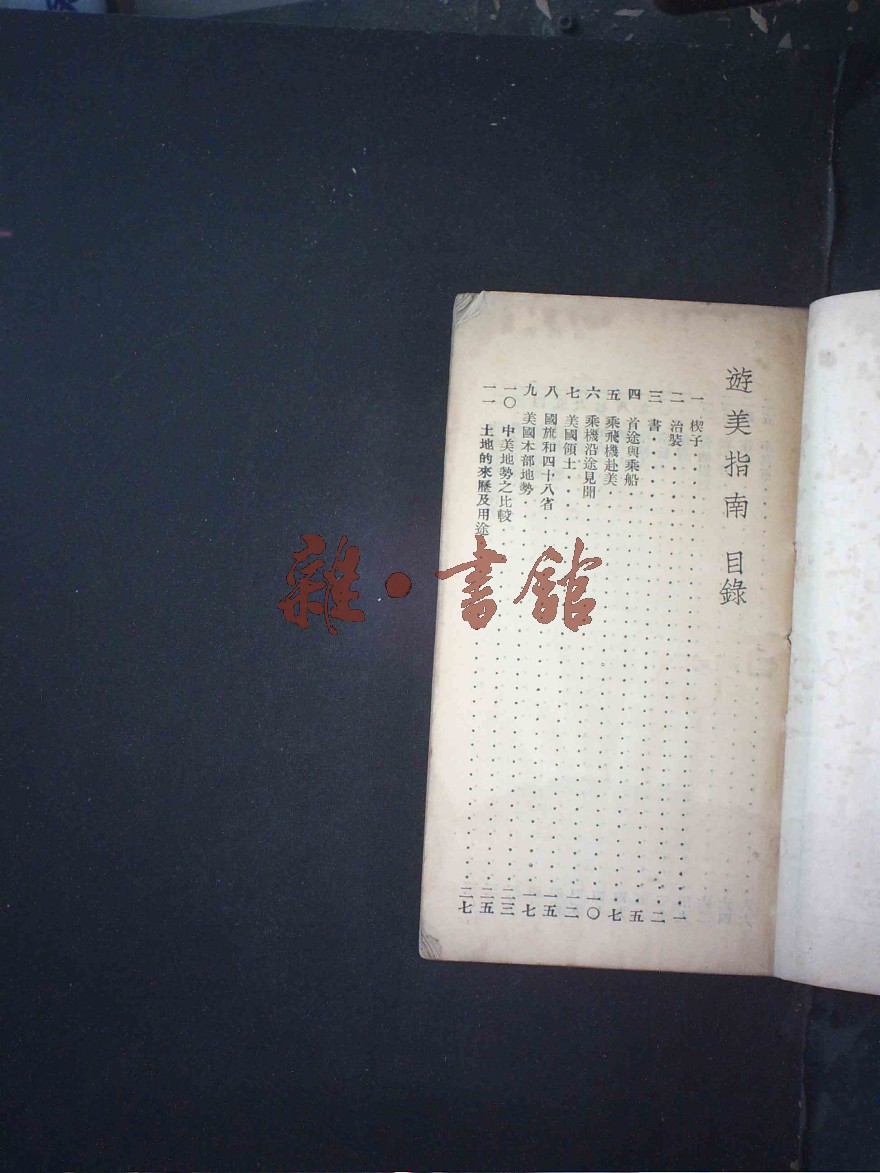 遊美指南 目錄
一 楔子 一
二 治裝 二
三 書 五
四 首途與乘船 七
五 乘飛機赴美 一〇
六 乘機沿途見聞 一二
七 美國領土 一五
八 國旗和四十八省 一七
九 美國本部地勢 二三
一〇 中美地勢之比較 二五
一一 土地的來歷及用途 二七
雜·書館